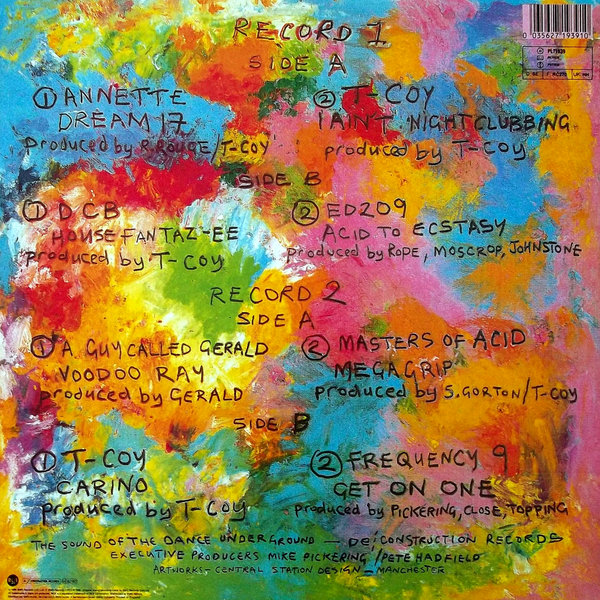 RECORD 1
0 035627 193910
SIDE A
① ANNETTE
DREAM 17
produced by R. ROUGE/T-COY
② T-COY
I AIN'T NIGHTCLUBBING
produced by T-COY
SIDE B
① DCB
HOUSE FANTAZ-EE
produced by T-COY
② ED209
ACID TO ECSTASY
produced by ROPE, MOSCROP, JOHNSTONE
RECORD 2
SIDE A
① A GUY CALLED GERALD
VOODOO RAY
produced by GERALD
② MASTERS OF ACID
MEGAGRIP
produced by S. GORTON/T-COY
SIDE B
① T-COY
CARINO
produced by T-COY
② FREQUENCY 9
GET ON ONE
produced by PICKERING, CLOSE, TOPPING
THE SOUND OF THE DANCE UNDERGROUND — De/CONSTRUCTION RECORDS
EXECUTIVE PRODUCERS MIKE PICKERING/PETE HADFIELD
ARTWORKS - CENTRAL STATION DESIGN - MANCHESTER